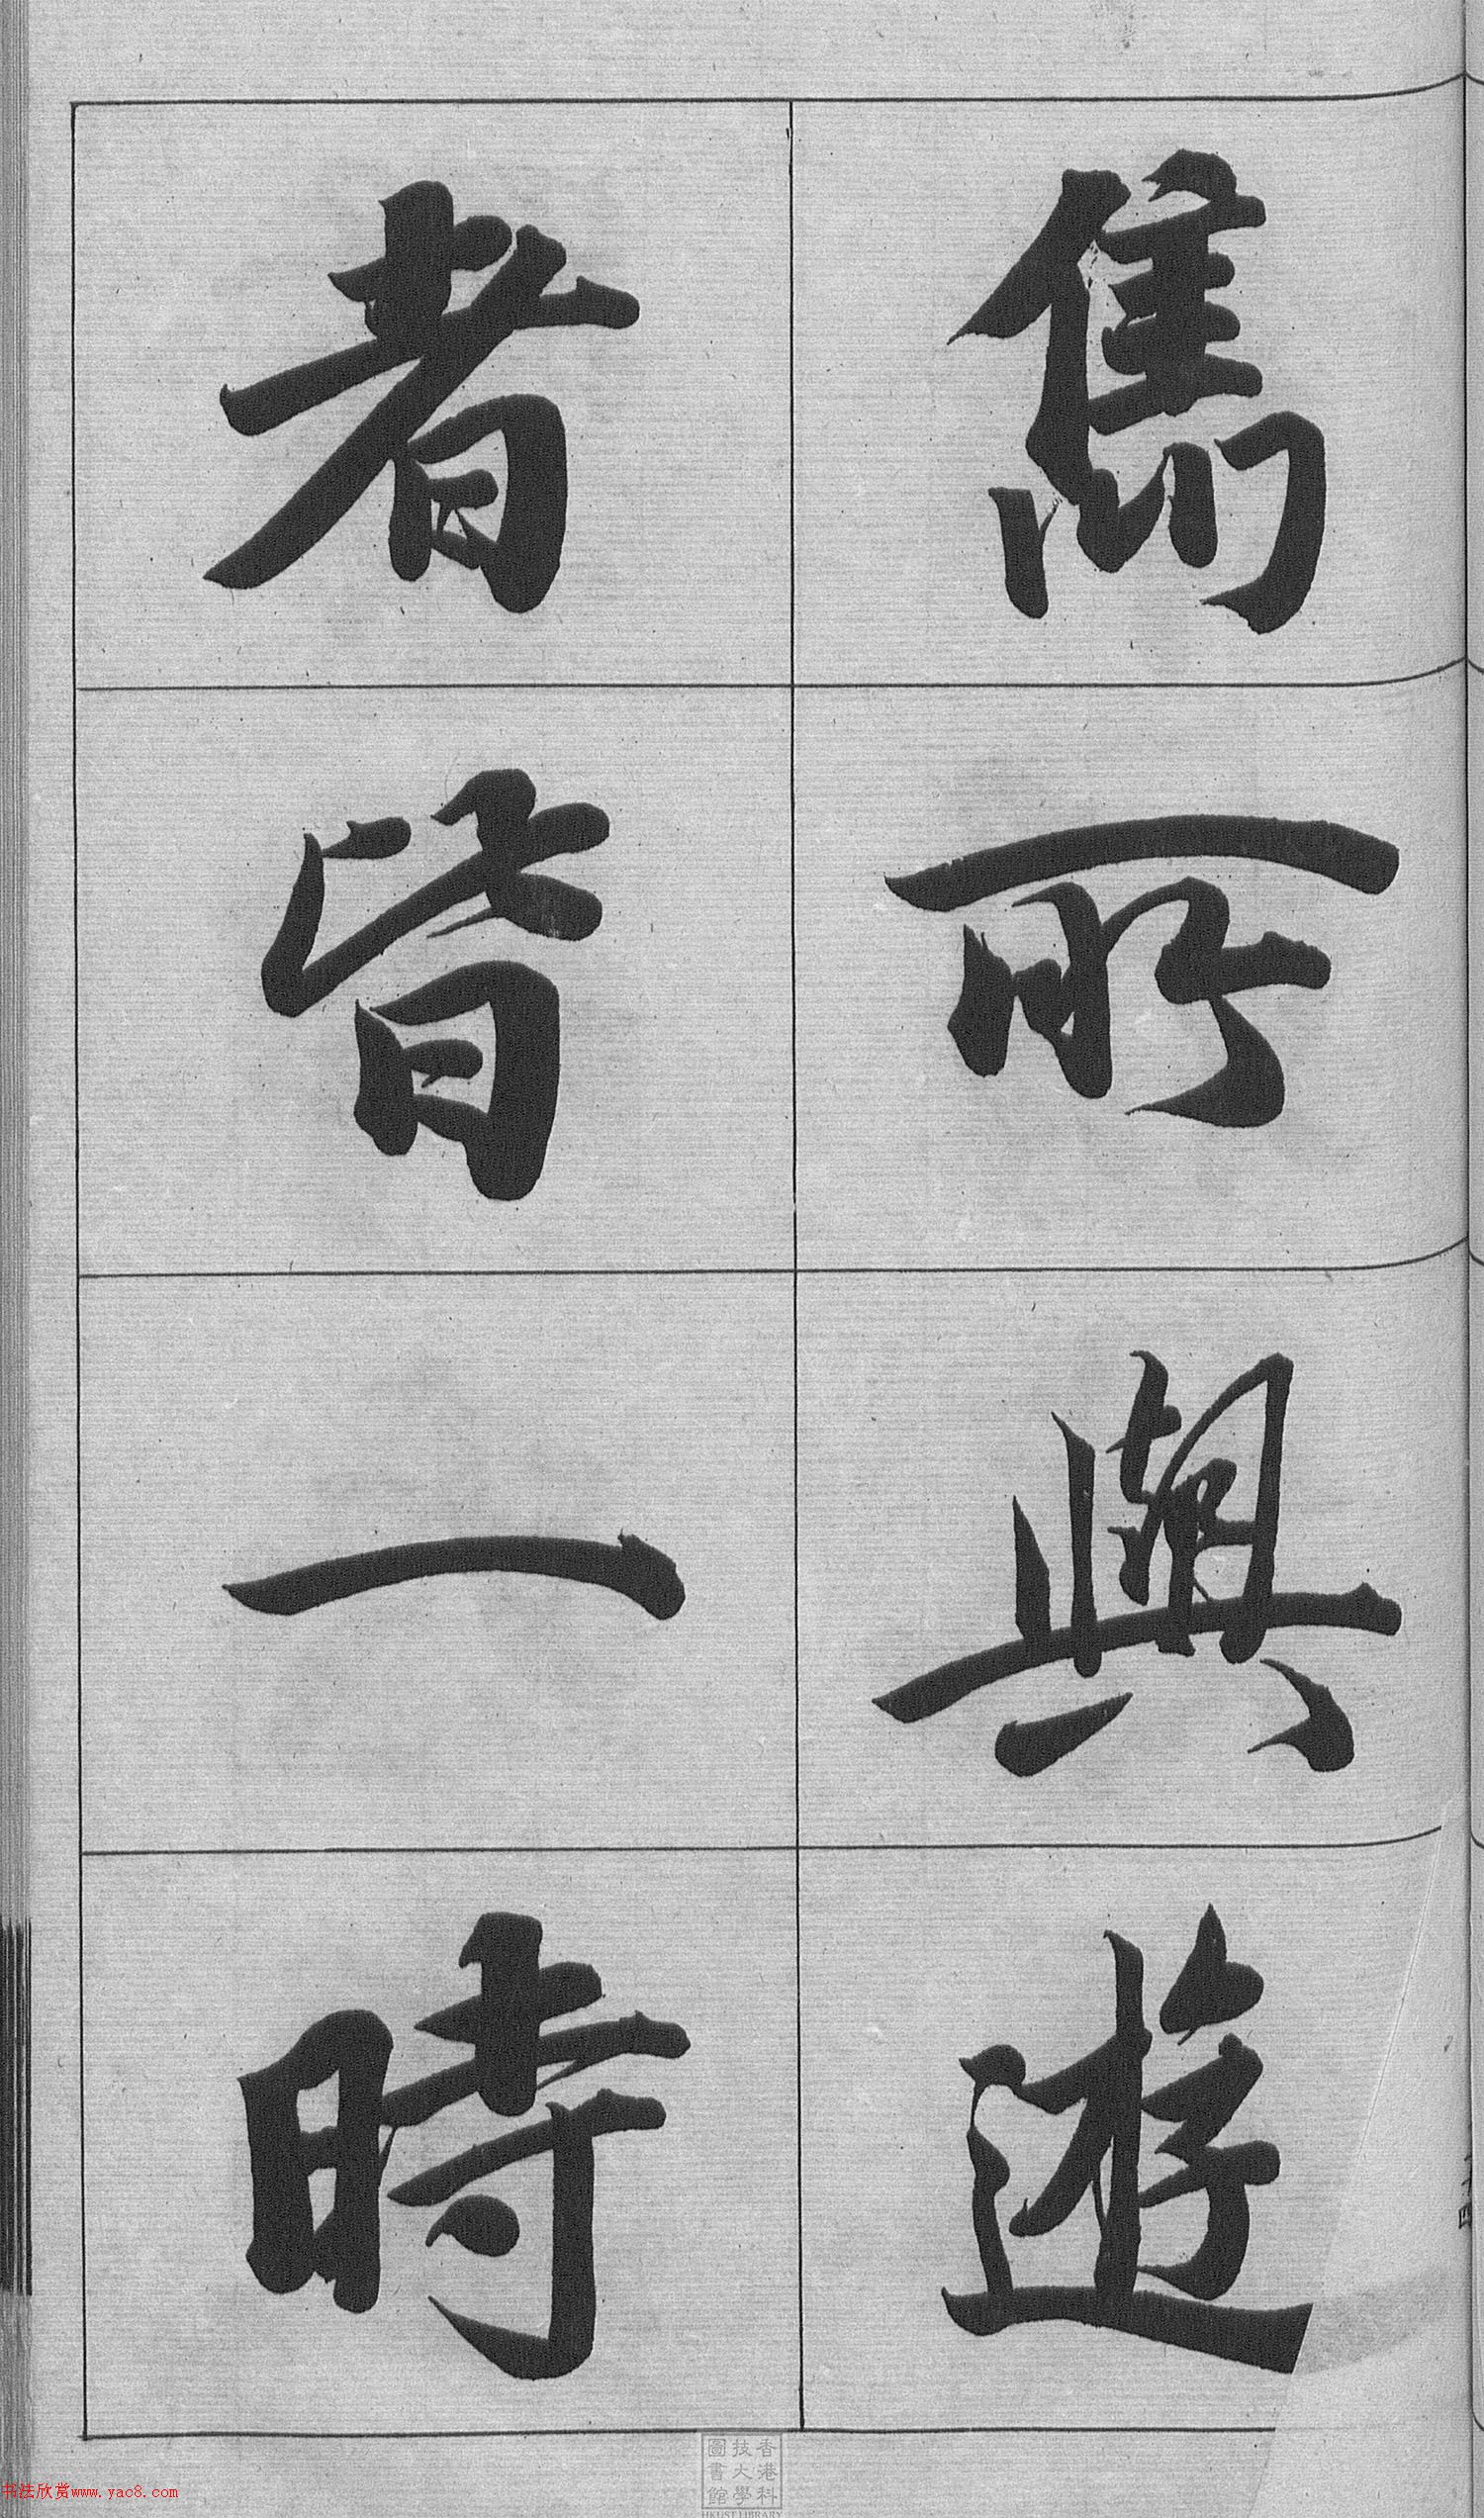 雋所與遊
者皆一時
香港科
技大學
圖書館
HKUST LIBRARY
书法欣赏www.yac8.com